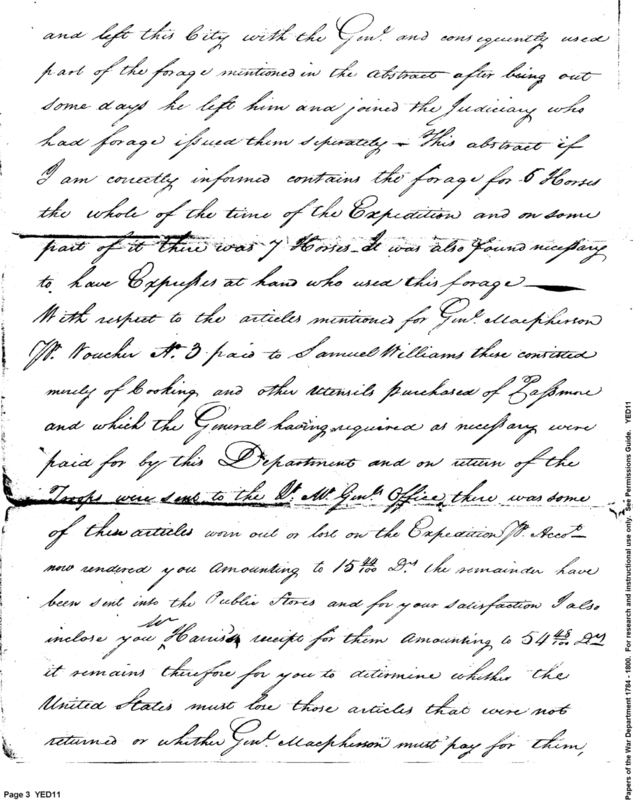 and left this City with the Genl. and consequently used
part of the forage mentioned in the abstract after being out
some days he left him and joined the Judiciary who
had forage issued them seperately – This abstract if
I am correctly informed contains the forage for 6 Horses
the whole of the time of the Expedition and on some
part of it there was 7 Horses – It was also found necessary
to have Expresses at hand who used this forage —
With respect to the articles mentioned for Genl. Macpherson
Pr. Voucher No. 3 paid to Samuel Williams these consisted
merely of Cooking and other Utensils purchased of Passmore
and which the General having required as necessary were
paid for by this Department and on return of the
Troops were sent to the Qr. Mr. Genls Office, there was some
of these articles worn out or lost on the Expedition Pr. Accot.
now rendered you amounting to 15 44/100 Drs. the remainder have
been sent into the Public Stores and for your satisfaction I also
inclose you Mr Harris's receipt for them amounting to 54 48/100 Drs
it remains therefore for you to determine whether the
United States must lose those articles that were not
returned or whether Genl. Macpherson must pay for them,
Page 3 YED11
Papers of the War Department 1784 - 1800. For research and instructional use only. See Permissions Guide. YED11